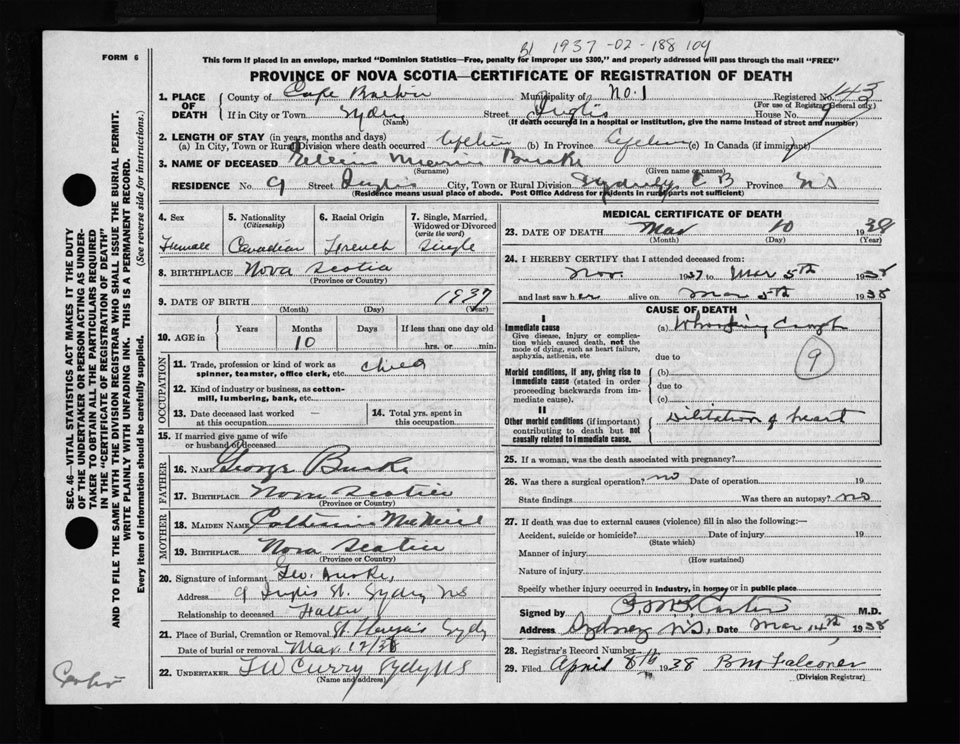 B1 1937-02-188104
FORM 6
This form if placed in an envelope, marked "Dominion Statistics—Free, penalty for improper use $300," and properly addressed will pass through the mail "FREE"
PROVINCE OF NOVA SCOTIA—CERTIFICATE OF REGISTRATION OF DEATH
SEC. 46—VITAL STATISTICS ACT MAKES IT THE DUTY
OF THE UNDERTAKER OR PERSON ACTING AS UNDER-
TAKER TO OBTAIN ALL THE PARTICULARS REQUIRED
IN THE "CERTIFICATE OF REGISTRATION OF DEATH"
AND TO FILE THE SAME WITH THE DIVISION REGISTRAR WHO SHALL ISSUE THE BURIAL PERMIT.
WRITE PLAINLY WITH UNFADING INK. THIS IS A PERMANENT RECORD.
Every item of information should be carefully supplied. (See reverse side for instructions.)
1. PLACE OF DEATH County of Cape Breton Municipality of No. 1 Registered No. 143
(For use of Registrar General only)
If in City or Town Sydney Street Inglis House No. 9
(Name) (If death occurred in a hospital or institution, give the name instead of street and number)
2. LENGTH OF STAY (in years, months and days)
(a) In City, Town or Rural Division where death occurred lifetime (b) in Province lifetime (c) In Canada (if immigrant)
3. NAME OF DECEASED Marie Burke
(Surname) (Given name or names)
RESIDENCE No. 9 Street Inglis City, Town or Rural Division Sydney C B Province NS
(Residence means usual place of abode. Post Office Address for residents in rural parts not sufficient)
4. Sex Female
5. Nationality (Citizenship) Canadian
6. Racial Origin French
7. Single, Married, Widowed or Divorced (write the word) Single
8. BIRTHPLACE Nova Scotia
(Province or Country)
9. DATE OF BIRTH 1937
(Month) (Day) (Year)
10. AGE in Years Months 10 Days If less than one day hrs. or min.
OCCUPATION
11. Trade, profession or kind of work as spinner, teamster, office clerk, etc. child
12. Kind of industry or business, as cotton-mill, lumbering, bank, etc.
13. Date deceased last worked at this occupation —
14. Total yrs. spent in this occupation
15. If married give name of wife or husband of deceased
FATHER
16. NAME George Burke
17. BIRTHPLACE Nova Scotia
(Province or Country)
MOTHER
18. MAIDEN NAME Catherine McNeil
19. BIRTHPLACE Nova Scotia
(Province or Country)
20. Signature of informant Geo. Burke,
Address 9 Inglis St. Sydney NS
Relationship to deceased Father
21. Place of Burial, Cremation or Removal St Sydney
Date of burial or removal Mar 12/38
22. UNDERTAKER T W Curry Sydney NS
(Name and address)
MEDICAL CERTIFICATE OF DEATH
23. DATE OF DEATH Mar 10 1938
(Month) (Day) (Year)
24. I HEREBY CERTIFY that I attended deceased from:
Nov. 1937 to Mar 5th 1938
and last saw her alive on Mar 5th 1938
CAUSE OF DEATH
I
Immediate cause (a) Whooping Cough
Give disease, injury or complication which caused death, not the mode of dying, such as heart failure, asphyxia, asthenia, etc due to
9
Morbid conditions, if any, giving rise to immediate cause (stated in order proceeding backwards from immediate cause). (b)
due to
(c)
II
Other morbid conditions (if important) contributing to death but not causally related to immediate cause. Dilitation of heart
25. If a woman, was the death associated with pregnancy?
26. Was there a surgical operation? no Date of operation 19
State findings Was there an autopsy? no
27. If death was due to external causes (violence) fill in also the following:—
Accident, suicide or homicide? Date of injury 19
(State which)
Manner of injury
(How sustained)
Nature of injury
Specify whether injury occurred in industry, in home, or in public place
Signed by M.D.
Address Sydney N.S. Date Mar 14th 1938
28. Registrar's Record Number
29. Filed April 8th 1938 B M Falconer
(Division Registrar)